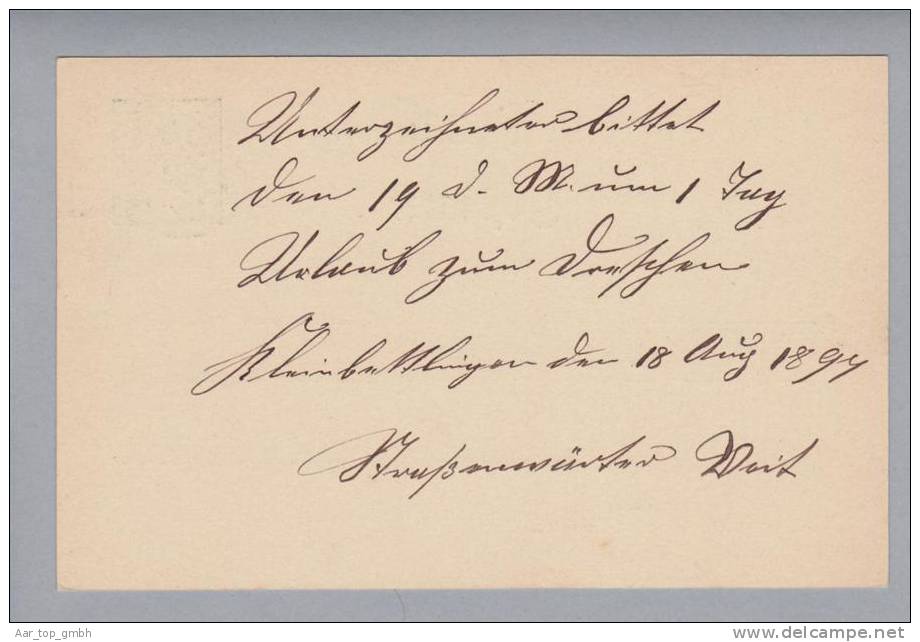 Unterzeichneter bittet
den 19 d. M. um 1 Tag
Urlaub zum Dreschen
Kleinbettlingen den 18 Aug 1897
Straßenwärter Veit
Aar_top_gmbh
www.delcampe.net